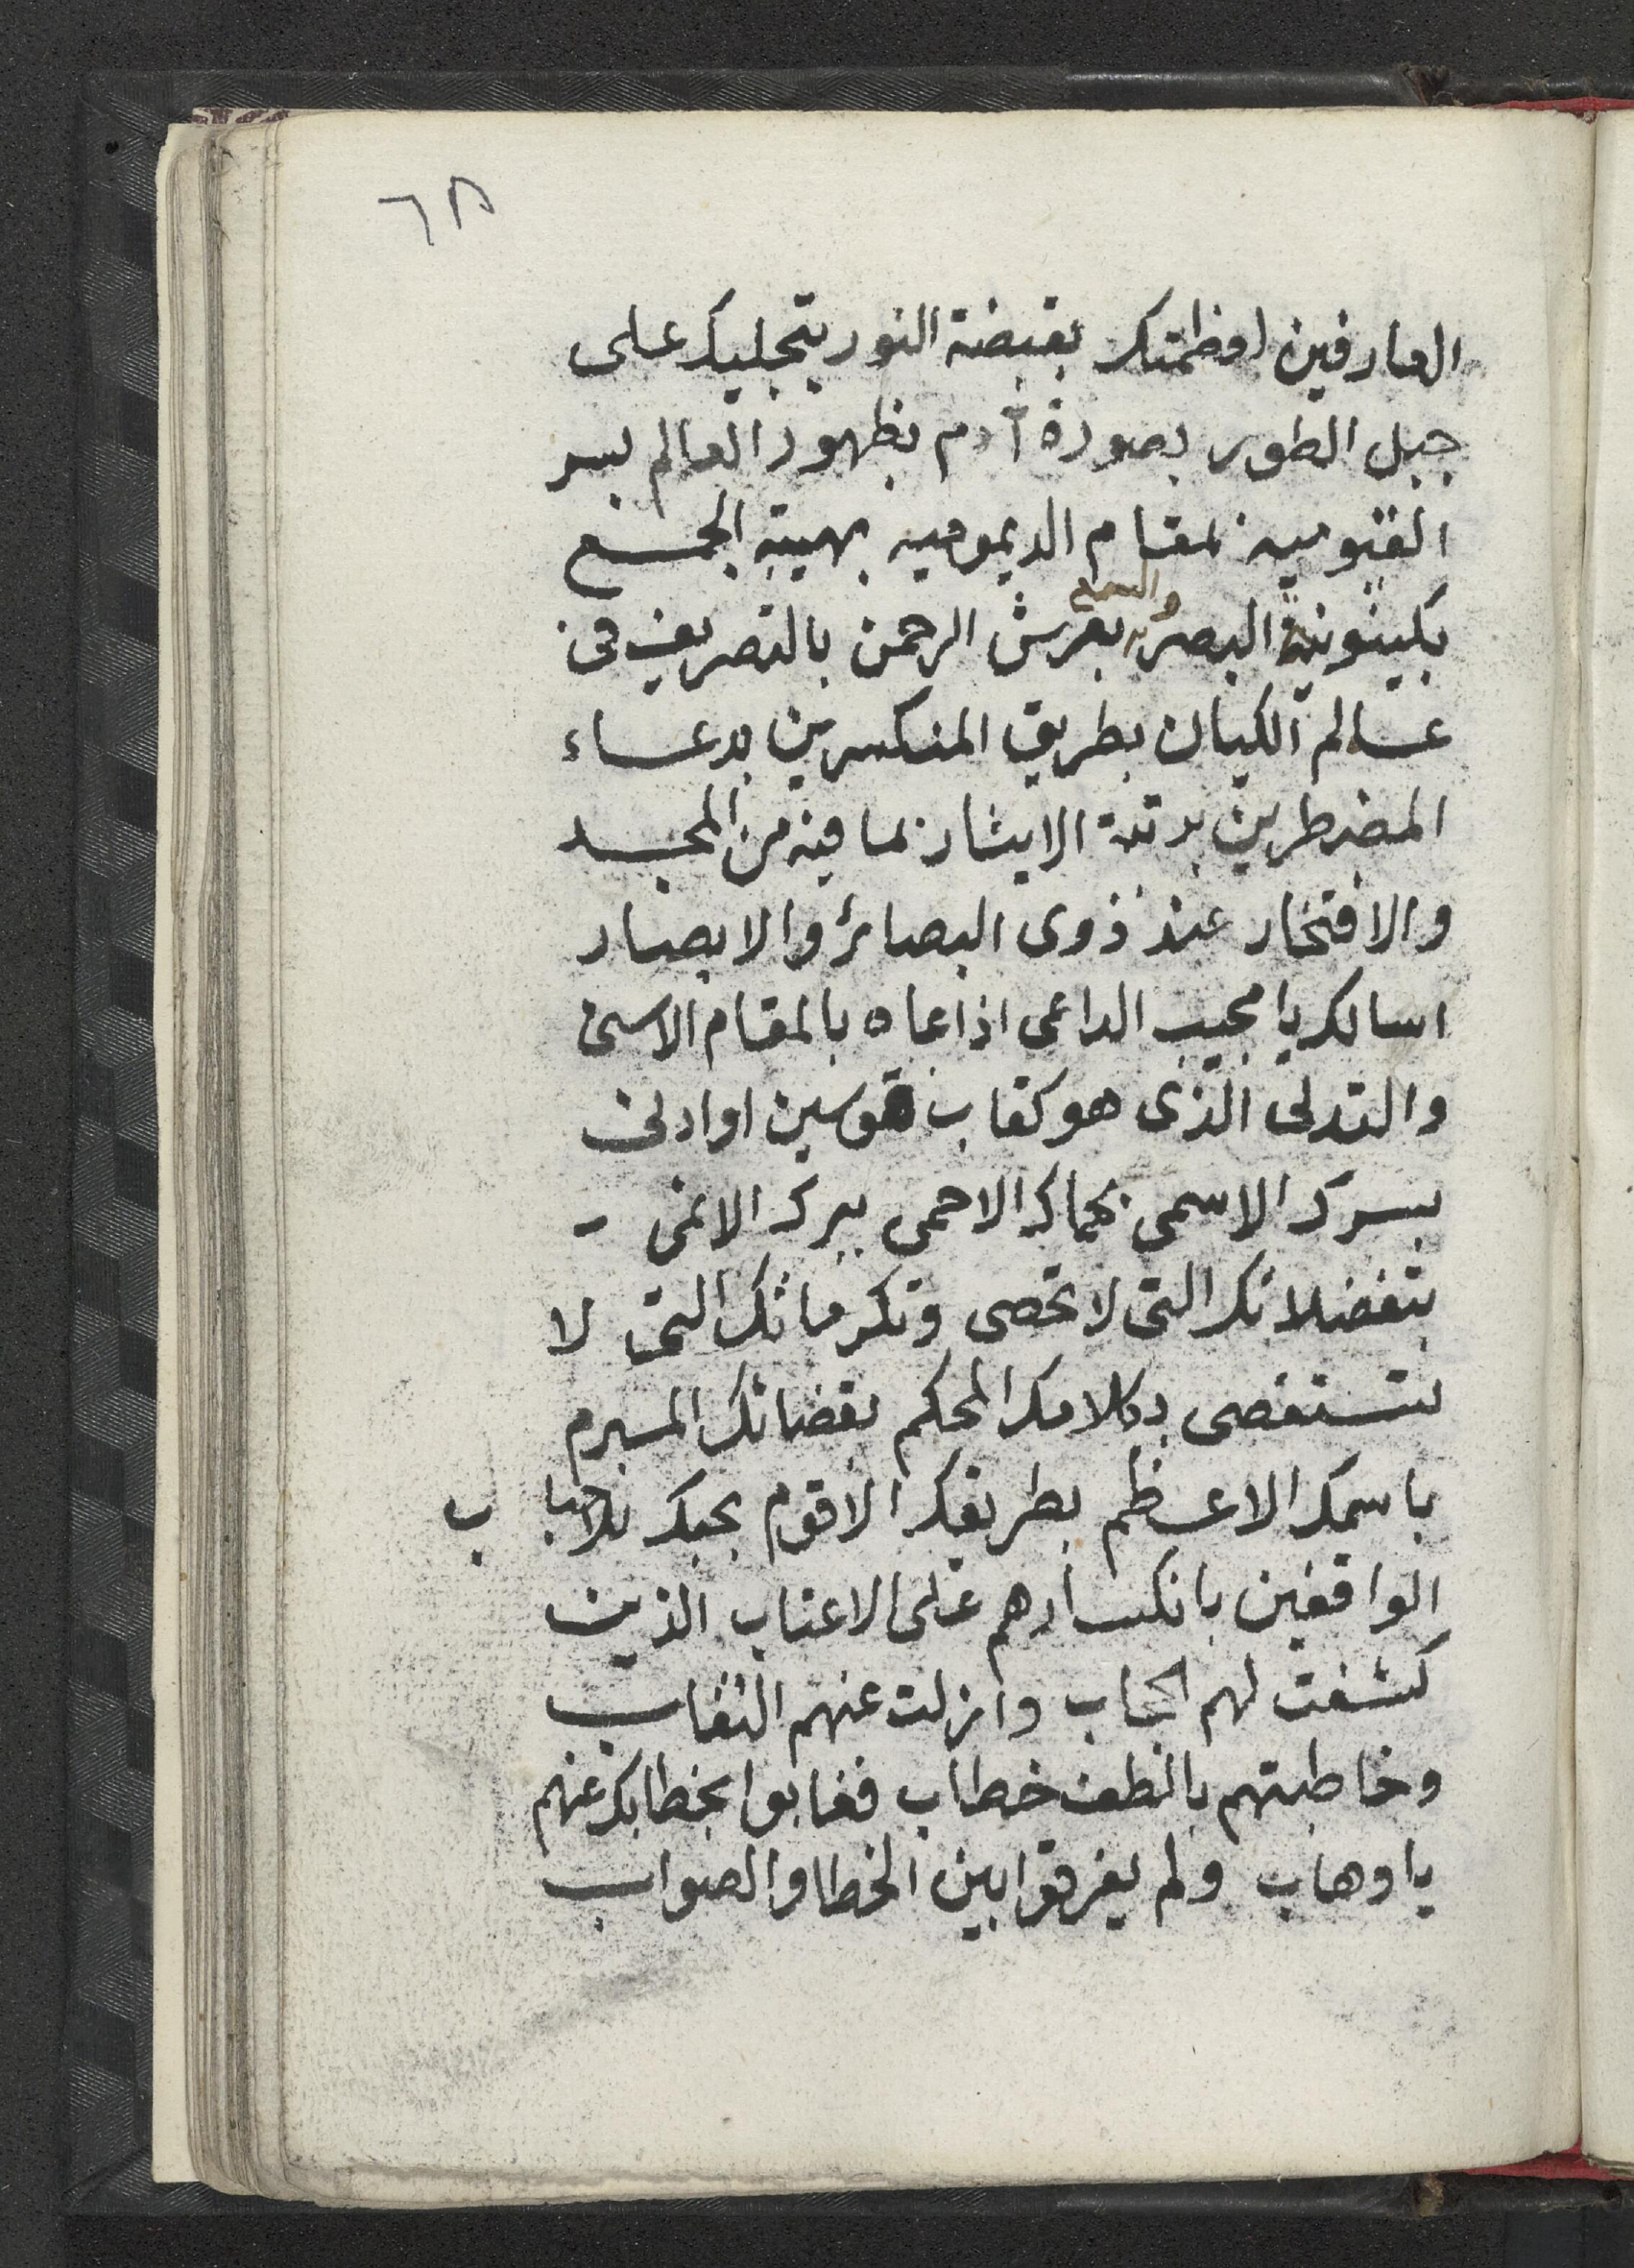 ٦٨
العارفين لعظمتك بقبضة النور بتجليك على
جبل الطور بصورة آدم بظهور العالم بسر
القيومية لمقام الديمومية بهيبة الجمع
والسمع
بكينونية البصر بعرش الرحمن بالتصريف في
عالم الكيان بطريق المنكسرين بدعاء
المضطرين برتبة الايثار لما فيه من المجد
والافتخار عند ذوى البصائر والابصار
اسالك يا مجيب الداعى اذا دعاه بالمقام الاسنى
والتدلى الذى هو كقاب قوسين او ادنى
بسرك الاسمى بحماك الاحمى ببرك الانمى
بتفضلاتك التى لا تحصى وتكرماتك التى لا
تستقصى بكلامك المحكم بقضائك المبرم
باسمك الاعظم بطريقك الاقوم بحبك للاحباب
الواقفين بانكسارهم على الاعتاب الذين
كشفت لهم الحجاب وازلت عنهم النقاب
وخاطبتهم بالطف خطاب فغابوا بخطابك عنهم
يا وهاب ولم يفرقوا بين الخطا والصواب